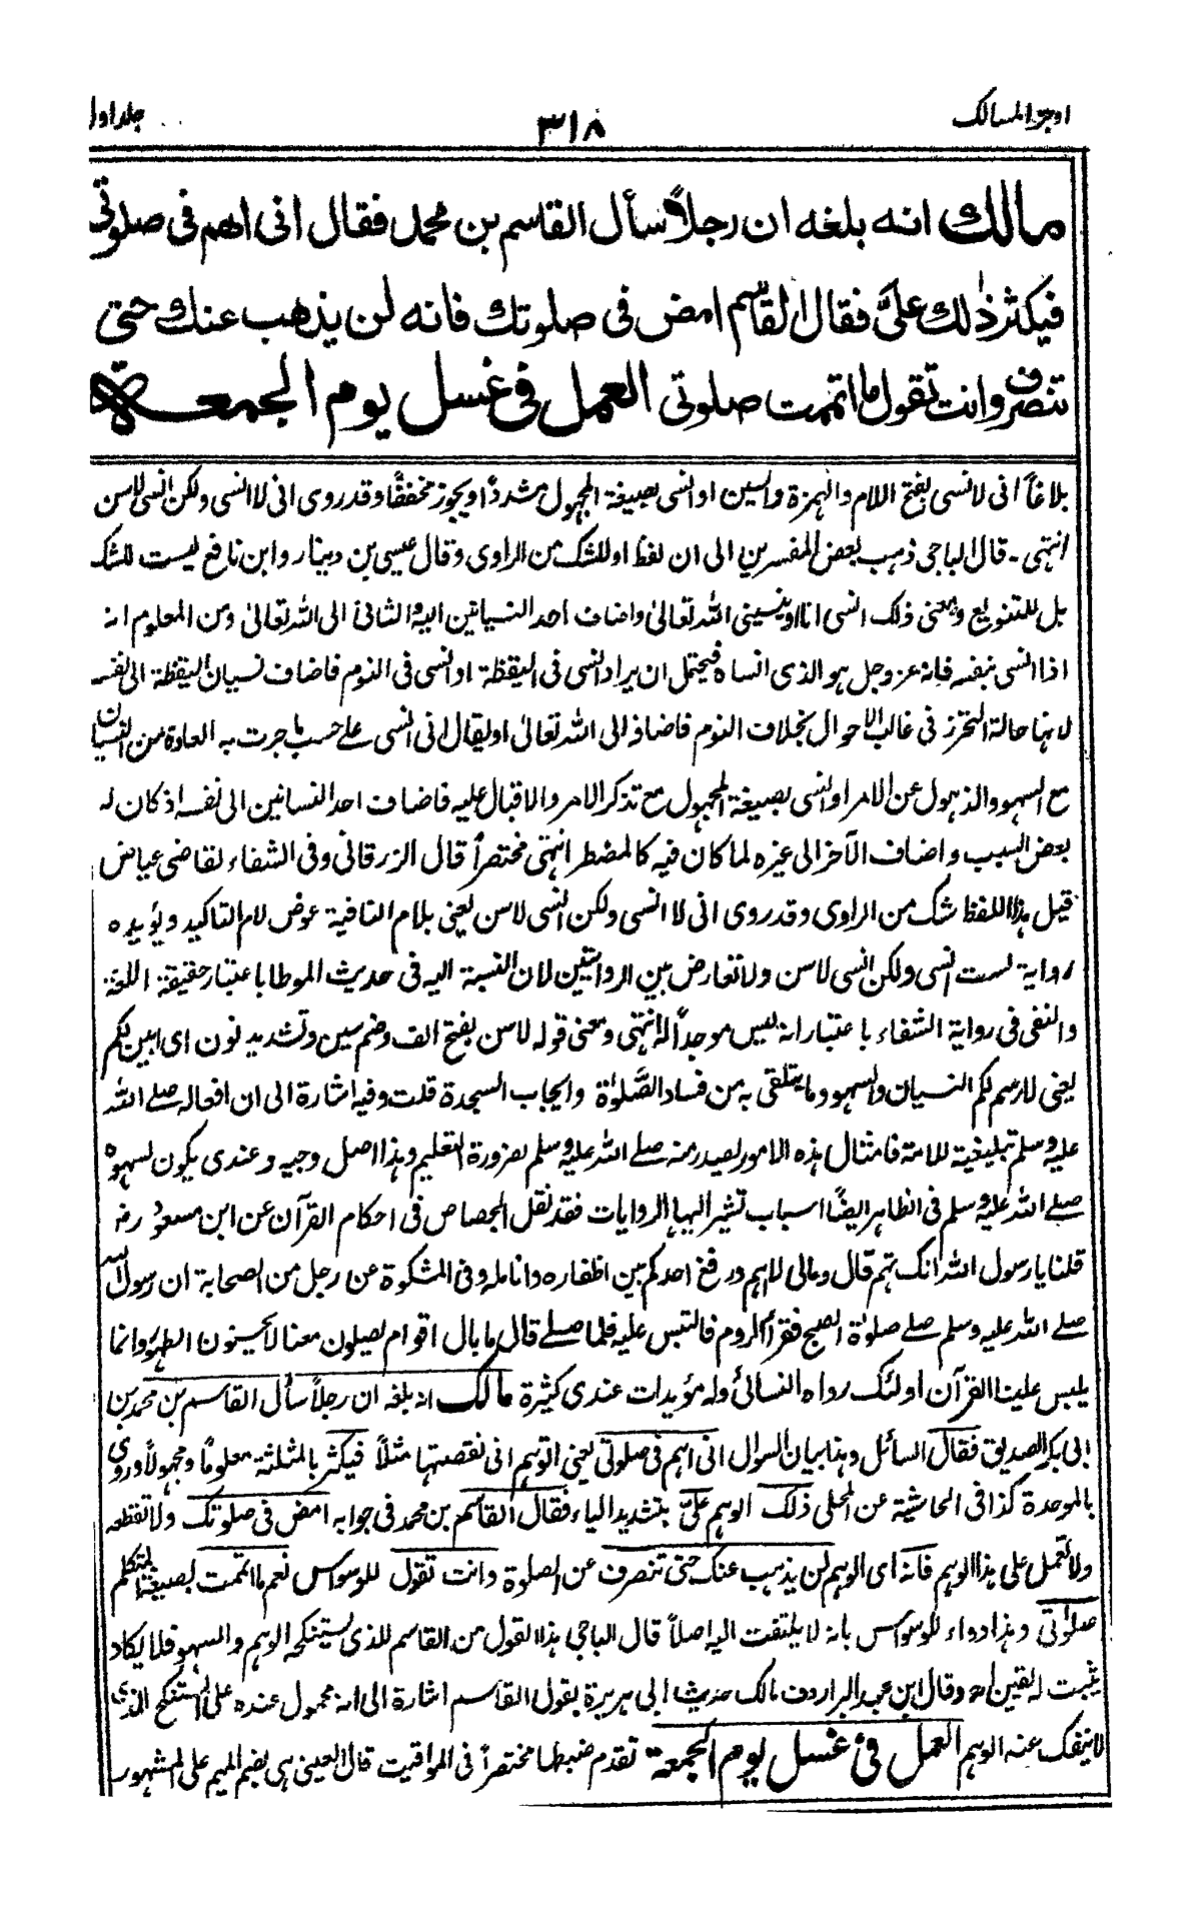 اوجز المسالك ٣١٨ جلد اول
مالك انه بلغه ان رجلاً سأل القاسم بن محمد فقال انى اهم فى صلوتى
فيكثر ذٰلك علىَّ فقال القاسم امض فى صلوتك فانه لن يذهب عنك حتى
تنصرف وانت تقول ما اتممت صلوتى العمل فى غسل يوم الجمعة
بلاغاً انى لانسى بفتح اللام والهمزة والسين او انسى بصيغة المجهول مشدداً ويجوز مخففاً وقد روى انى لا انسى ولكن انسى لاسن
انتهى - قال الباجى ذهب بعض المفسرين الى ان لفظ او للشك من الراوى وقال عيسى بن دينار وابن نافع ليست للشك
بل للتنويع ومعنى ذلك انسى انا او ينسينى الله تعالىٰ واضاف احد النسيانين اليه والثانى الى الله تعالىٰ ومن المعلوم انه
اذا انسى نفسه فانه عز وجل هو الذى انساه فيحتمل ان يراد انسى فى اليقظة او انسى فى النوم فاضاف نسيان اليقظة الى نفسه
لانها حالة التحرز فى غالب الاحوال بخلاف النوم فاضافه الى الله تعالىٰ او ليقال انى انسى على حسب ما جرت به العادة من النسيان
مع السهو والذهول عن الامر او انسى بصيغة المجهول مع تذكر الامر والاقبال عليه فاضاف احد النسانين الى نفسه اذ كان له
بعض السبب واضاف الآخر الى غيره لما كان فيه كالمضطر انتهى مختصراً قال الزرقانى وفى الشفاء لقاضى عياض
قيل هذا اللفظ شك من الراوى وقد روى انى لا انسى ولكن انسى لاسن يعنى بلام النافية عوض لام التاكيد ويؤيده
رواية لست انسى ولكن انسى لاسن ولا تعارض بين الروايتين لان النسبة اليه فى حديث الموطا باعتبار حقيقة اللغة
والنفى فى رواية الشفاء باعتبار انه ليس موجداً له انتهى ومعنى قوله لاسن بفتح الف وضم سين وتشديد نون اى ابين لكم
يعنى لارسم لكم النسيان والسهو وما يتلقى به من فساد الصَّلوٰة وايجاب السجدة قلت وفيه اشارة الى ان افعاله صلے الله
عليه وسلم تبليغية للامة فامثال هذه الامور ليصدر منه صلے الله عليه وسلم لضرورة التعليم وهذا اصل وجيه وعندى يكون لسهوه
صلے الله عليه وسلم فى الظاهر ايضاً اسباب تشير اليها الروايات فقد نقل الجصاص فى احكام القرآن عن ابن مسعود رض
قلنا يا رسول الله انك تهم قال ومالى لا اهم ورفغ احدكم بين اظفاره وانامله وفى المشكوة عن رجل من الصحابة ان رسول الله
صلے الله عليه وسلم صلے صلوٰة الصبح فقرأ الروم فالتبس عليه فلما صلے قال ما بال اقوام يصلون معنا لا يحسنون الطهور وانما
يلبس علينا القرآن اولئك رواه النسائى وله مؤيدات عندى كثيرة مالك انه بلغه ان رجلاً سأل القاسم بن محمد بن
ابى بكر الصديق فقال السائل وهذا بيان السوال انى اهم فى صلوتى يعنى اتوهم انى نقصتها مثلاً فيكثر بالمثلثة معلوماً ومجهولاً وروى
بالموحدة كذا فى الحاشية عن المحلى ذلك الوهم علىَّ بتشديد الياء فقال القاسم بن محمد فى جوابه امض فى صلوتك ولا تقطعه
ولا تعمل على هذا الوهم فانه اى الوهم لن يذهب عنك حتى تنصرف عن الصلوة وانت تقول للوسواس نعم ما اتممت بصيغة المتكلم
صلوتى وهذا دواء للوسواس بانه لا يلتفت اليه اصلاً قال الباجى هذا القول من القاسم للذى يستنكحه الوهم والسهو فلا يكاد
يثبت له يقين اه وقال ابن عبد البر اردف مالك حديث ابى هريرة بقول القاسم اشارة الى انه محمول عنده على المستنكح الذى
لا ينفك عنه الوهم العمل فى غسل يوم الجمعة تقدم ضبطها مختصراً فى المواقيت قال العينى هى بضم الميم على المشهور